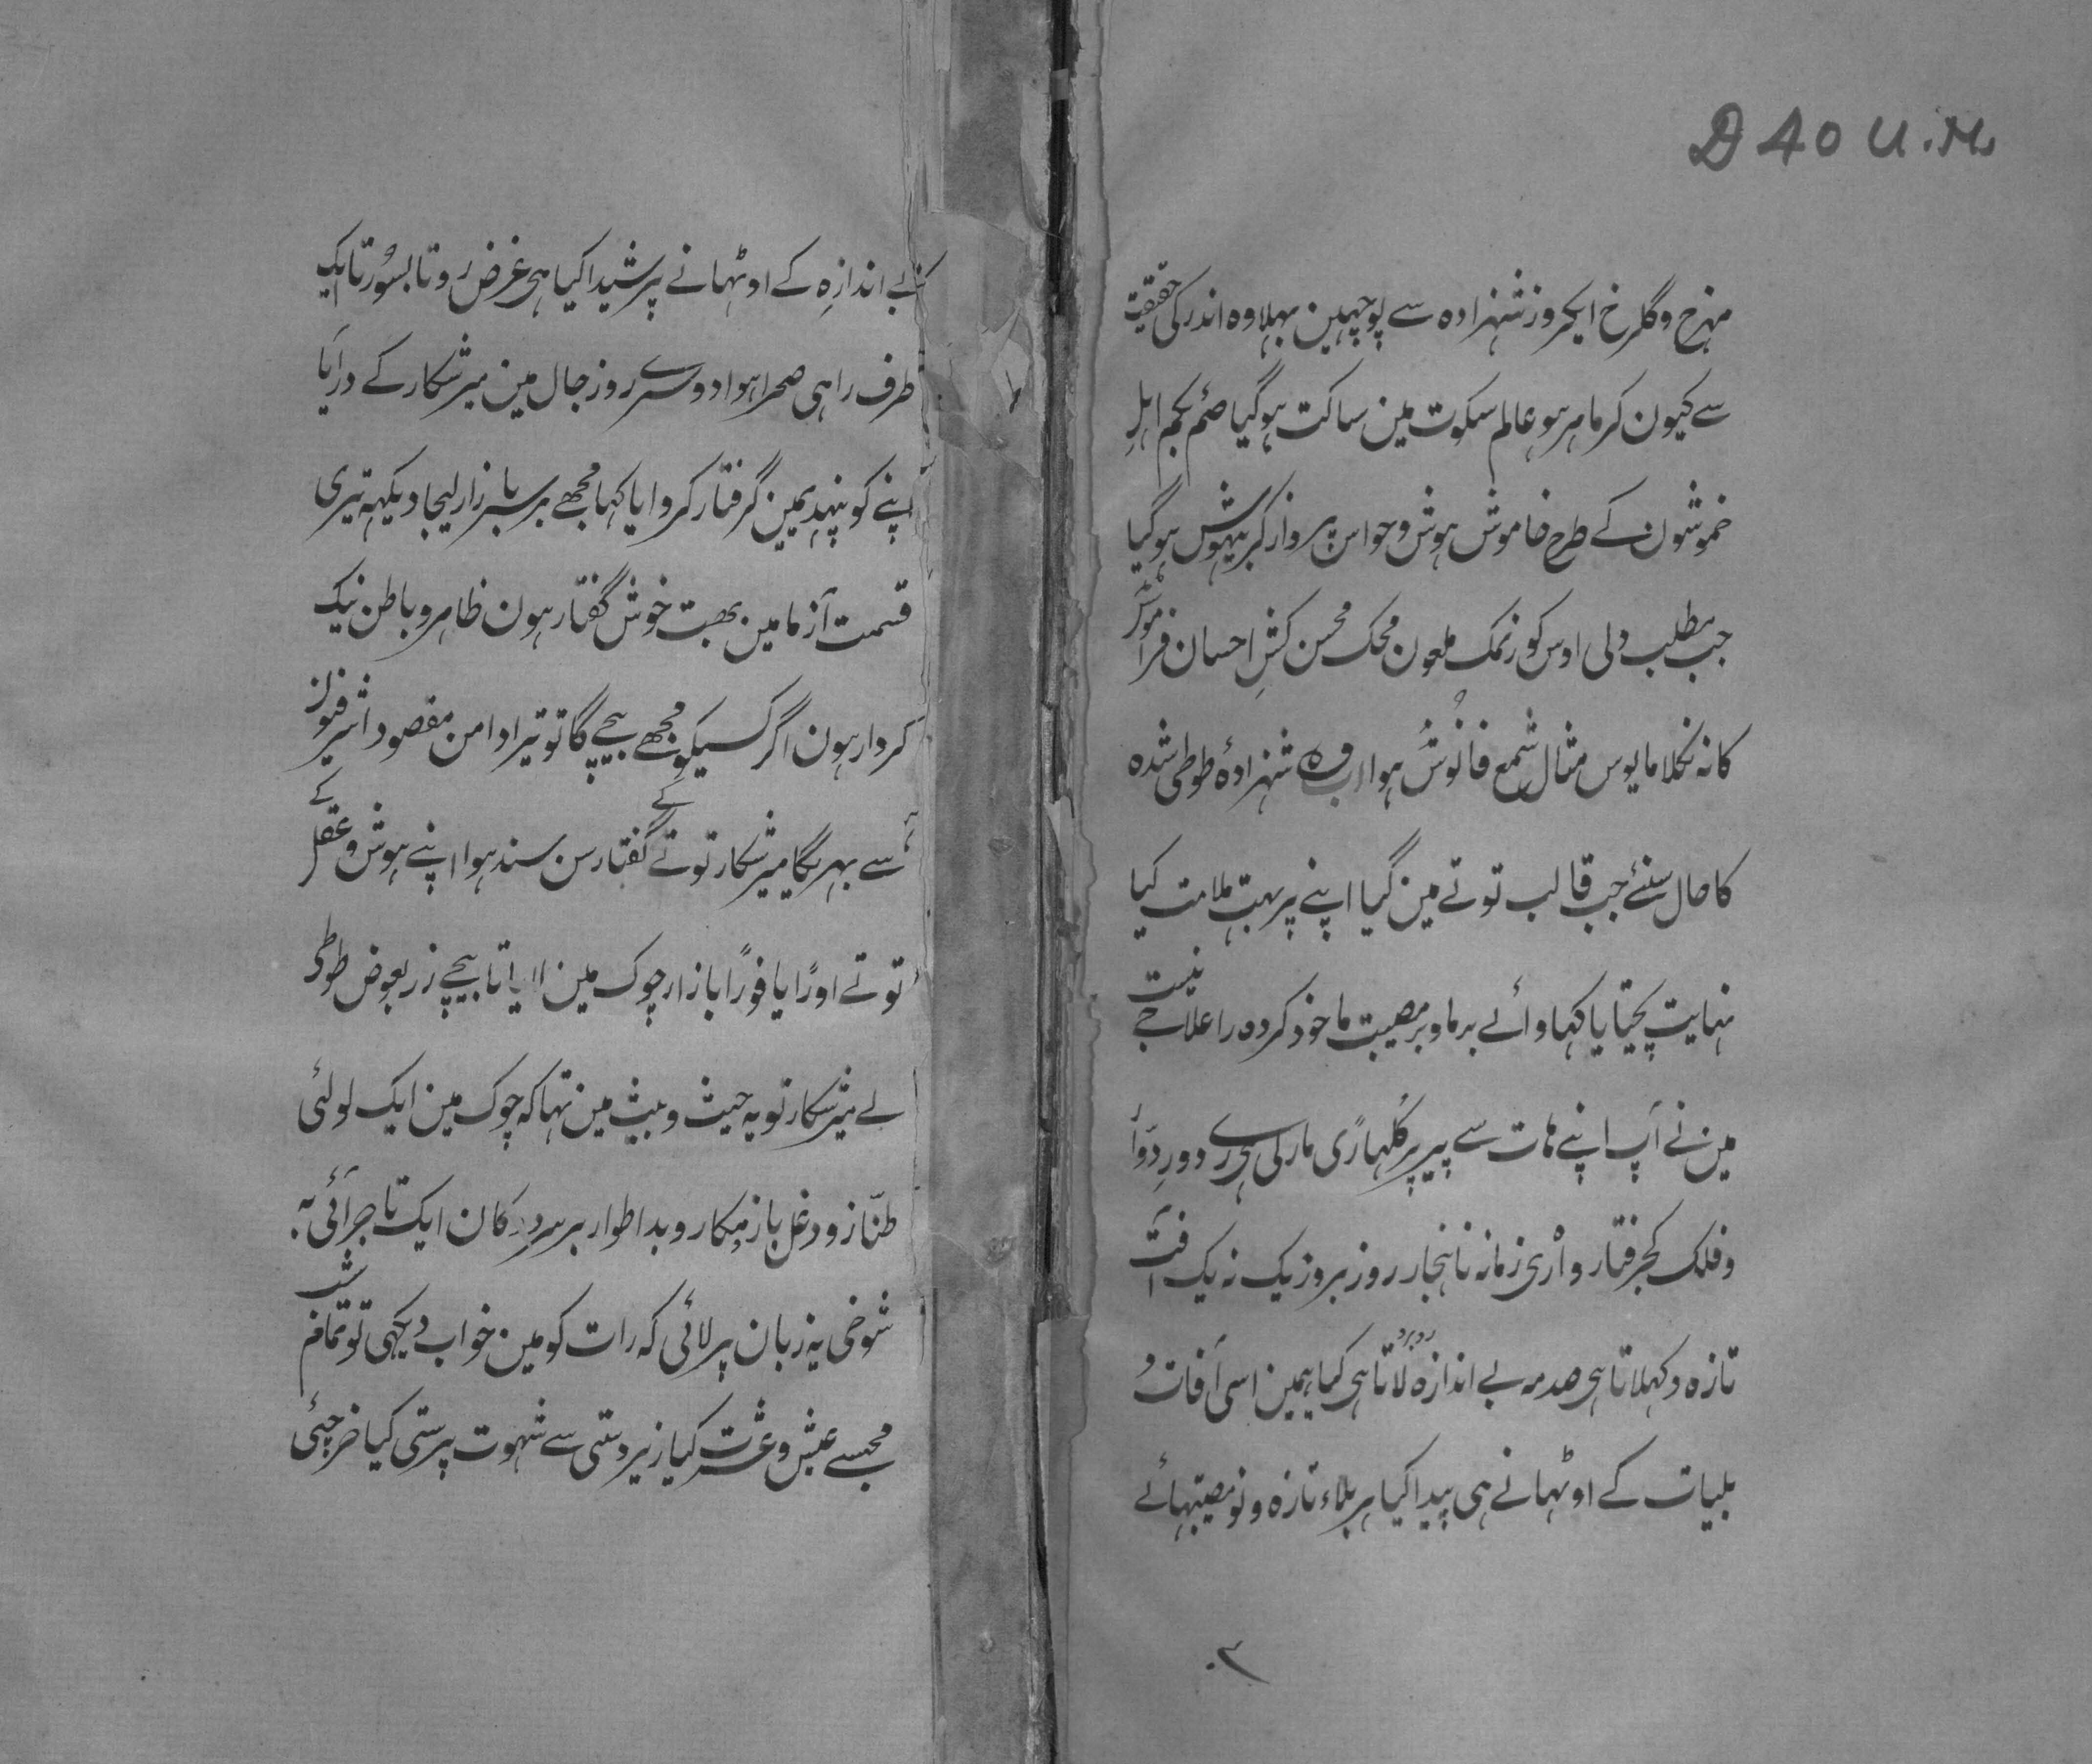 D 40 U.M.
مہرخ و گلرخ ایکروز شہزادہ سے پوچہین بہلا وہ اندر کی حقیقت
سے کیون کر ماہر ہو عالم سکوت مین ساکت ہو گیا صم بکم اہلِ
خموشون کے طرح خاموش ہوش و حواس پرواز کر بیہوش ہو گیا
جب مطلب دلی اوس کور نمک ملعون محسن کشِ احسان فراموش
کا نہ نکلا مایوس مثال شمع فانوس ہوا اب وہ شہزادۂ طوطی شدہ
کا حال سنئے جب قالب توتے مین گیا اپنے پر بہت ملامت کیا
نہایت پچتایا کہا وائے بر ما و بر مصیبت ما خود کردہ را علاجے نیست
مین نے آپ اپنے ہات سے پیر پر کلہاڑی مار لی ہی رے دورِ دوّار
و فلک کجرفتار و اری زمانہ ناہنجار روز بروز یک نہ یک آفت
تازہ دکہلاتا ہی صدمہ بے اندازہ لاتا ہی کیا ہمین اسی آفات و
بلیات کے اوٹہانے ہی پیدا کیا ہر بلاء تازہ و نو مصیبتہائے
۳۰
بے اندازہ کے اوٹہانے پر شیدا کیا ہی غرض روتا بسورتا ایک
طرف راہی صحرا ہوا دوسرے روز جال مین میر شکار کے در آیا
اپنے کو پہندیمین گرفتار کروایا کہا مجھے بر سر بازار لیجا دیکہہ تیری
قسمت آزما مین بہت خوش گفتار ہون ظاہر و باطن نیک
کردار ہون اگر کسیکو مجھے بیچیگا تو تیرا دامن مقصود اشرفیون
سے بہریگا میر شکار توتے کے گفتار سن سند ہوا اپنے ہوش و عقل کے
توتے اوڑایا فورًا بازار چوک مین لایا تا بیچے زر بعوض طوطی
لے میر شکار تو یہ حیث و بیث مین تہا کہ چوک مین ایک لولئی
طنّاز و دغل باز مکار و بد اطوار بر سر دکان ایک تاجر آئی بہ
شوخی یہ زبان پر لائی کہ رات کو مین خواب دیکہی تو تمام شب
مجسے عیش و عشرت کیا زبردستی سے شہوت پرستی کیا خرچئی